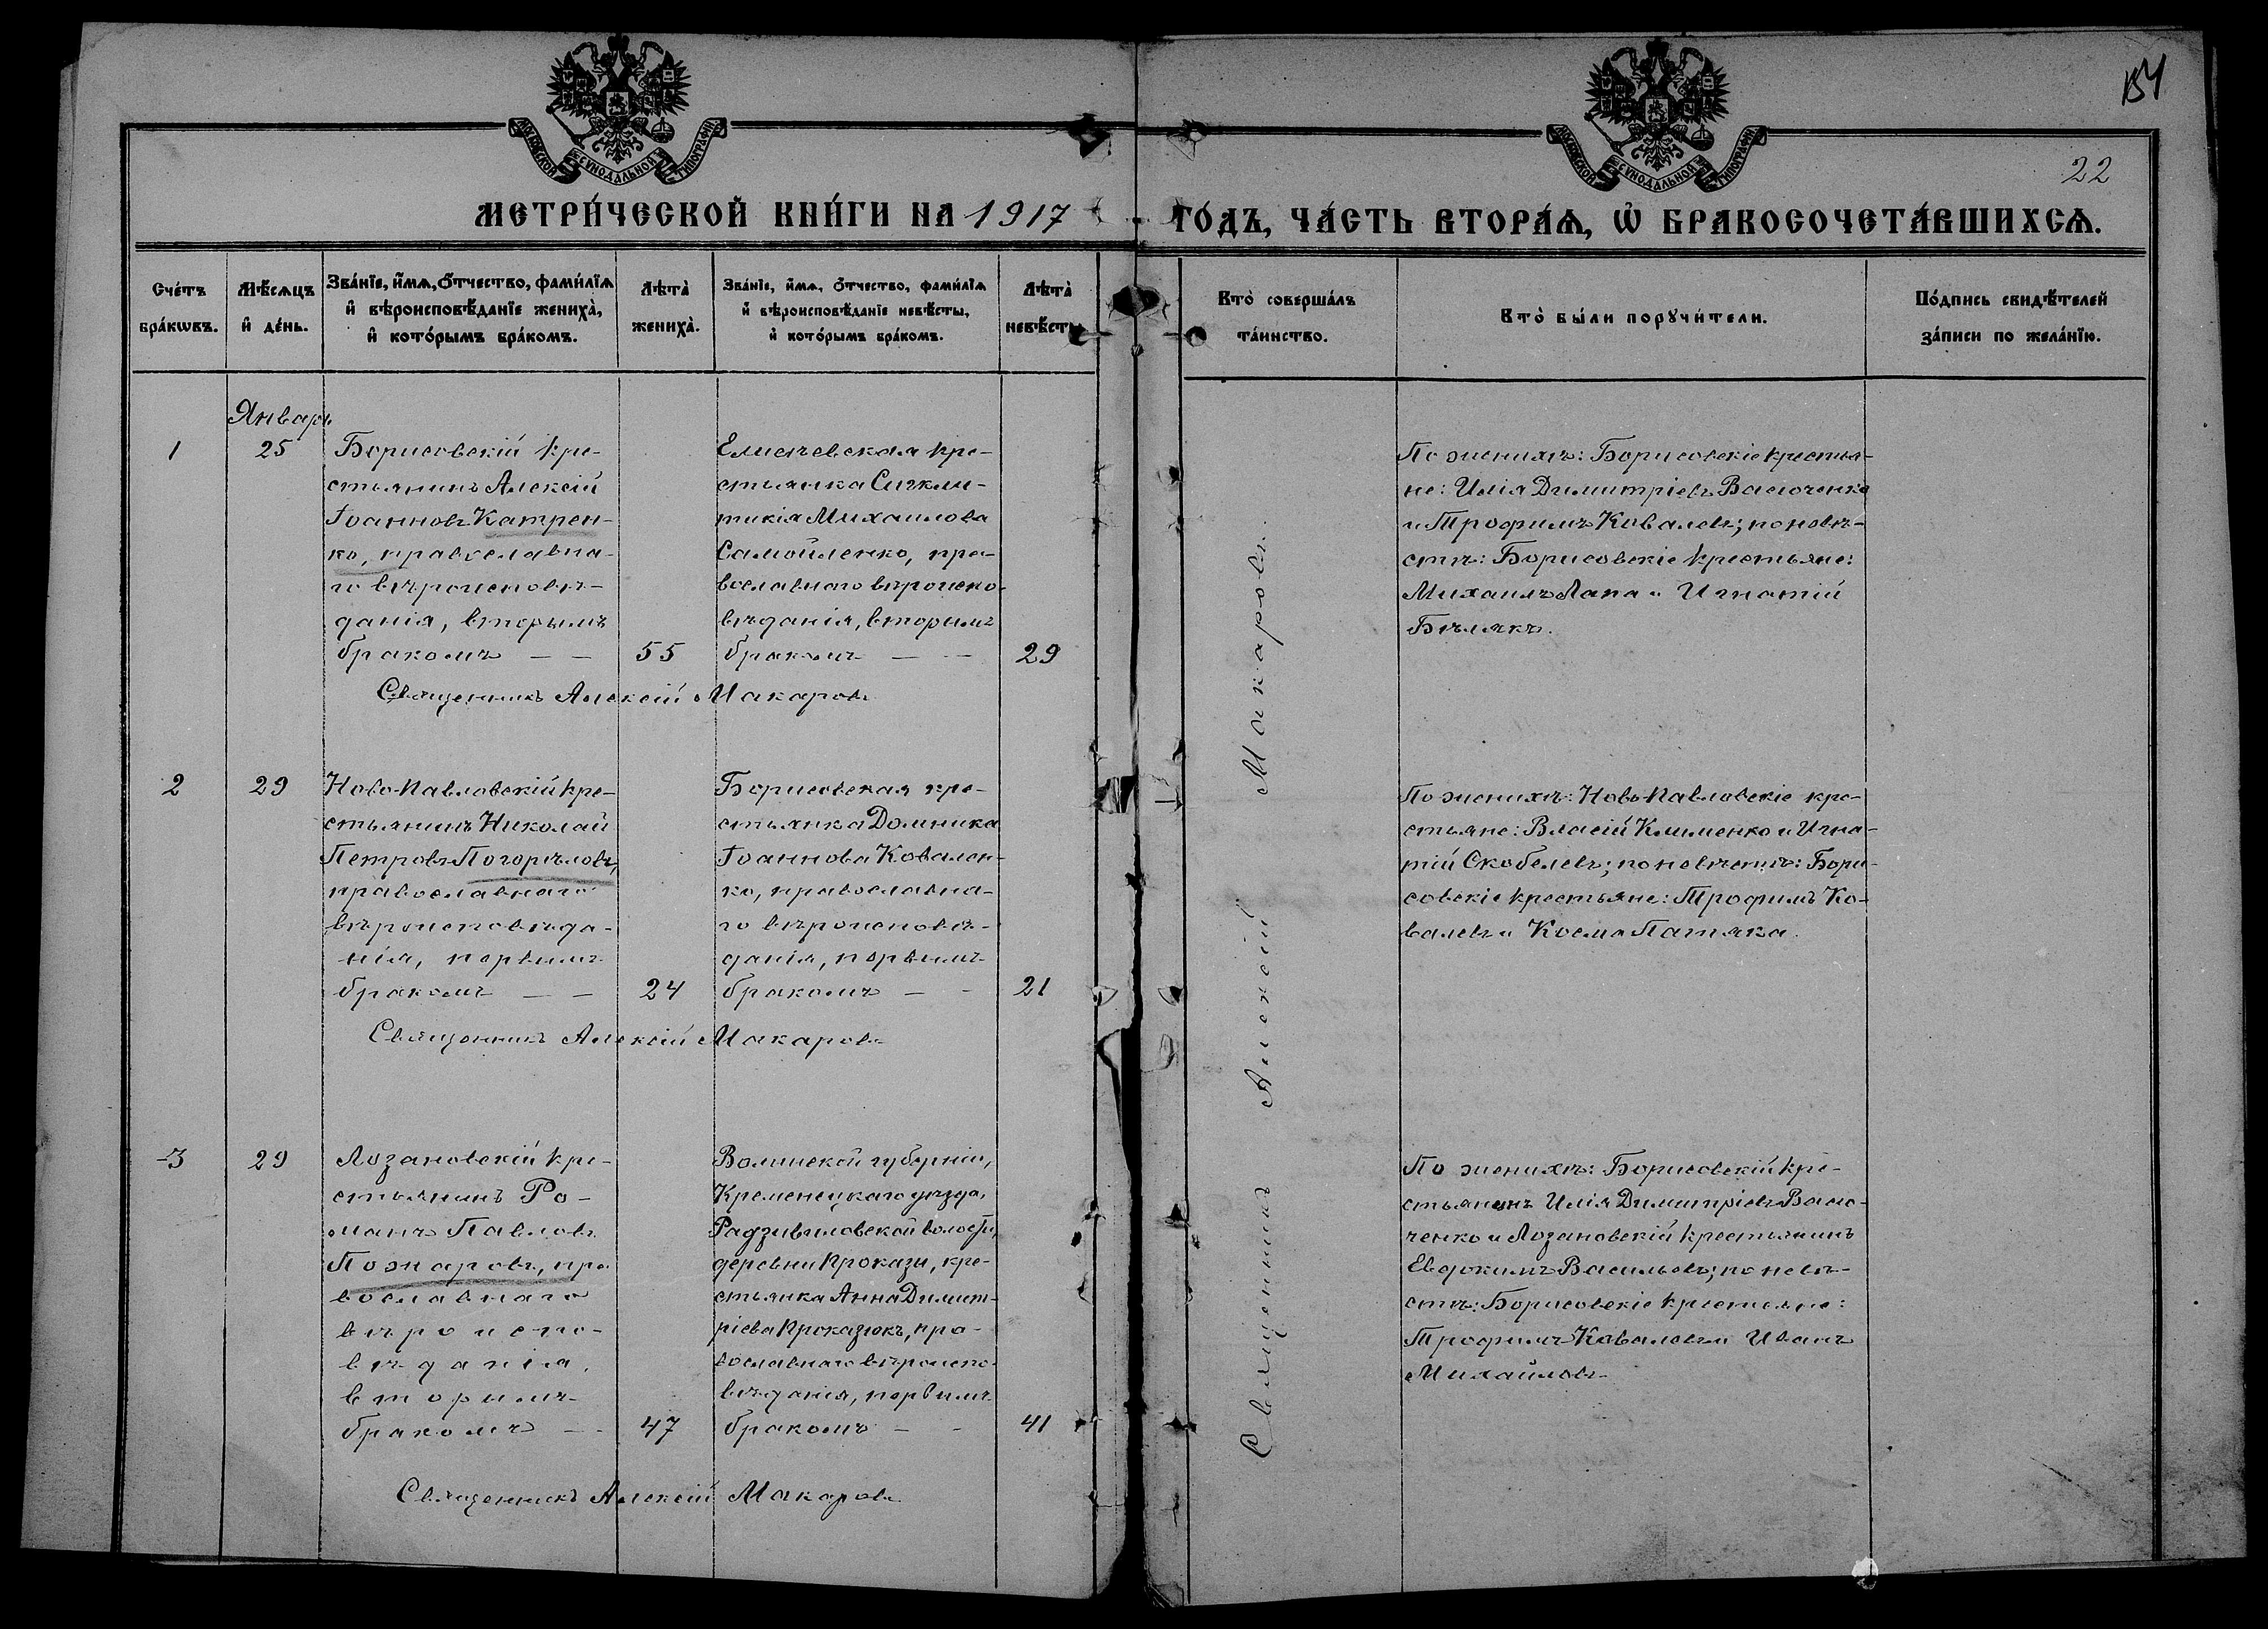 МОСКОВСКОЙ СѴНОДАЛЬНОЙ ТИПОГРАФІИ
МОСКОВСКОЙ СѴНОДАЛЬНОЙ ТИПОГРАФІИ
22
МЕТРИ́ЧЕСКОЙ КНИ́ГИ НА 1917
ГО́ДЪ, ЧА́СТЬ ВТОРА́Ѧ, Ѽ БРАКОСОЧЕТА́ВШИХСѦ.
Сче́тъ
бра́кѡвъ.
Мѣ́сѧцъ
и҆ де́нь.
Зва́нїе, и҆́мѧ, ѻ҆́тчество, фами́лїѧ
и҆ вѣроисповѣ́данїе жениха̀,
и҆ кото́рымъ бра́комъ.
Лѣта̀
жениха̀.
Зва́нїе, и҆́мѧ, ѻ҆́тчество, фами́лїѧ
и҆ вѣроисповѣ́данїе невѣ́сты,
и҆ кото́рымъ бра́комъ.
Лѣта̀
невѣ́сты
Кто̀ соверша́лъ
та́инство.
Кто̀ бы́ли порꙋчи́тели.
По́дпись свидѣ́телей
за́писи по жела́нїю.
Январь
1
25
Борисовскій кре-
стьянинъ Алексій
Іоанновъ Катрен-
ко, православна-
го вѣроисповѣ-
данія, вторымъ
бракомъ — —
55
Елисѣевская кре-
стьянка Сигкли-
тикія Михаилова
Самойленко, пра-
вославнаго вѣроиспо-
вѣданія, вторымъ
бракомъ — —
29
Священникъ Алексій Макаровъ
По женихѣ: Борисовскіе крестья-
не: Илія Димитріевъ Васюченко
и Трофимъ Ковалевъ; по невѣ-
стѣ: Борисовскіе крестьяне:
Михаилъ Лапа и Игнатій
Бѣлякъ.
2
29
Ново-Павловскій кре-
стьянинъ Николай
Петровъ Погорѣловъ,
православнаго
вѣроисповѣда-
нія, первымъ
бракомъ — —
24
Борисовская кре-
стьянка Домника
Іоаннова Ковален-
ко, православна-
го вѣроисповѣ-
данія, первымъ
бракомъ — -
21
Священникъ Алексій Макаровъ
По женихѣ: Ново-Павловскіе кре-
стьяне: Власій Клименко и Игна-
тій Скобелевъ; по невѣстѣ: Бори-
совскіе крестьяне: Трофимъ Ко-
валевъ и Косма Патяка.
3
29
Лозановскій кре-
стьянинъ Ро-
манъ Павловъ
Пожаровъ, пра-
вославнаго
вѣроиспо-
вѣданія,
вторымъ
бракомъ — -
47
Волынской губерніи,
Кременецкаго уѣзда,
Радзивиловской волости,
деревни Проказы, кре-
стьянка Анна Димит-
ріева Проказюкъ, пра-
вославнаго вѣроиспо-
вѣданія, первымъ
бракомъ — -
41
Священникъ Алексій Макаровъ
По женихѣ: Борисовскій кре-
стьянинъ Илія Димитріевъ Васю-
ченко и Лозановскій крестьянинъ
Евдокимъ Васильевъ; по невѣ-
стѣ: Борисовскіе крестьяне:
Трофимъ Ковалевъ и Иванъ
Михайловъ
Священникъ Алексій Макаровъ.